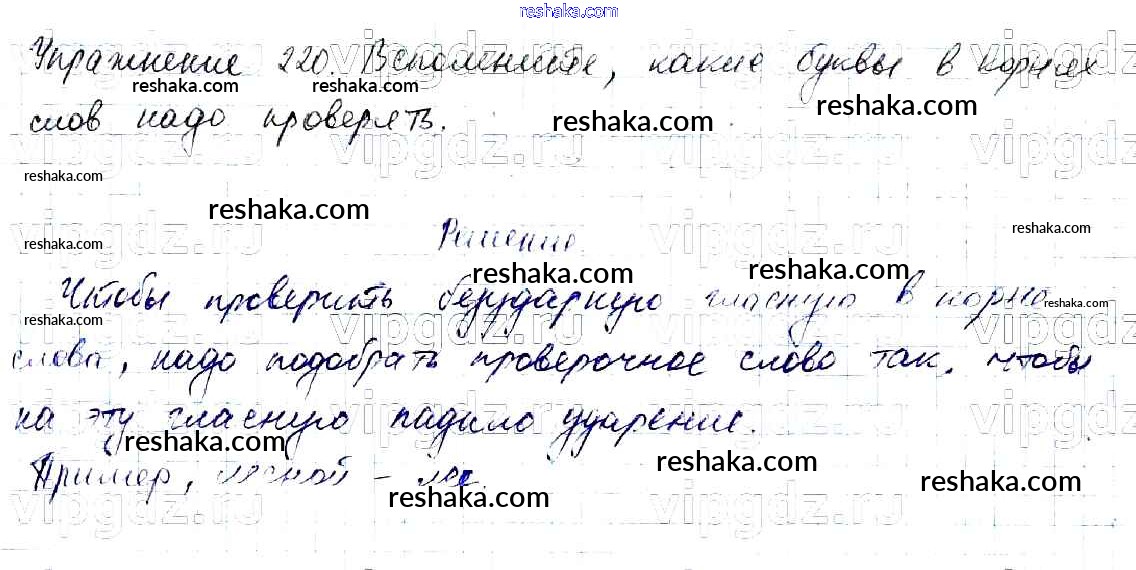 reshaka.com
Упражнение 220. Вспомните, какие буквы в корнях
reshaka.com reshaka.com reshaka.com reshaka.com
слов надо проверять.
reshaka.com
vipgdz.ru vipgdz.ru vipgdz.ru vipgdz.ru
reshaka.com
reshaka.com
Решение.
vipgdz.ru vipgdz.ru vipgdz.ru vipgdz.ru
reshaka.com reshaka.com
reshaka.com reshaka.com
Чтобы проверить безударную гласную в корне
reshaka.com reshaka.com
слова, надо подобрать проверочное слово так, чтобы
на эту гласную падало ударение.
vipgdz.ru vipgdz.ru vipgdz.ru vipgdz.ru
reshaka.com reshaka.com
Пример, лесной – лес.
reshaka.com reshaka.com
vipgdz.ru vipgdz.ru vipgdz.ru vipgdz.ru